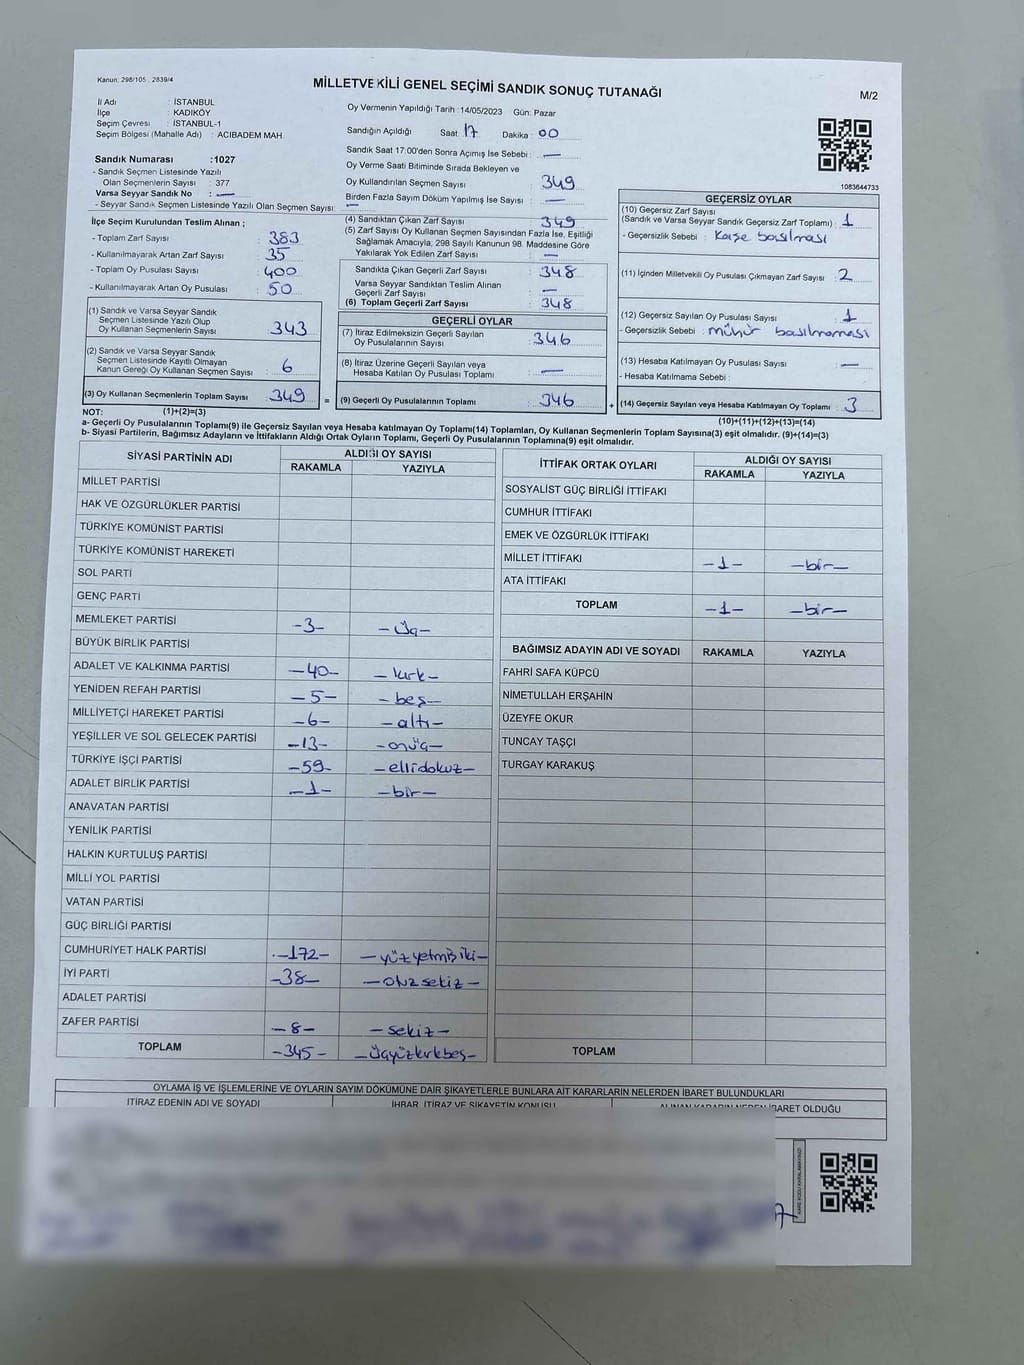 Kanun: 298/105 , 2839/4
MİLLETVEKİLİ GENEL SEÇİMİ SANDIK SONUÇ TUTANAĞI
M/2
İl Adı : İSTANBUL
İlçe : KADIKÖY
Seçim Çevresi : İSTANBUL-1
Seçim Bölgesi (Mahalle Adı) : ACIBADEM MAH.
Sandık Numarası :1027
- Sandık Seçmen Listesinde Yazılı
Olan Seçmenlerin Sayısı : 377
Varsa Seyyar Sandık No : —
- Seyyar Sandık Seçmen Listesinde Yazılı Olan Seçmen Sayısı: —
İlçe Seçim Kurulundan Teslim Alınan ;
- Toplam Zarf Sayısı : 383
- Kullanılmayarak Artan Zarf Sayısı : 35
- Toplam Oy Pusulası Sayısı : 400
- Kullanılmayarak Artan Oy Pusulası : 50
(1) Sandık ve Varsa Seyyar Sandık
Seçmen Listesinde Yazılı Olup
Oy Kullanan Seçmenlerin Sayısı : 343
(2) Sandık ve Varsa Seyyar Sandık
Seçmen Listesinde Kayıtlı Olmayan
Kanun Gereği Oy Kullanan Seçmen Sayısı : 6
(3) Oy Kullanan Seçmenlerin Toplam Sayısı : 349
Oy Vermenin Yapıldığı Tarih :14/05/2023 Gün: Pazar
Sandığın Açıldığı Saat: 17 Dakika: 00
Sandık Saat 17:00'den Sonra Açılmış İse Sebebi : —
Oy Verme Saati Bitiminde Sırada Bekleyen ve
Oy Kullandırılan Seçmen Sayısı : 349
Birden Fazla Sayım Döküm Yapılmış İse Sayısı : —
(4) Sandıktan Çıkan Zarf Sayısı : 349
(5) Zarf Sayısı Oy Kullanan Seçmen Sayısından Fazla İse, Eşitliği
Sağlamak Amacıyla, 298 Sayılı Kanunun 98. Maddesine Göre
Yakılarak Yok Edilen Zarf Sayısı : —
Sandıkta Çıkan Geçerli Zarf Sayısı : 348
Varsa Seyyar Sandıktan Teslim Alınan
Geçerli Zarf Sayısı : —
(6) Toplam Geçerli Zarf Sayısı : 348
GEÇERLİ OYLAR
(7) İtiraz Edilmeksizin Geçerli Sayılan
Oy Pusulalarının Sayısı : 346
(8) İtiraz Üzerine Geçerli Sayılan veya
Hesaba Katılan Oy Pusulası Toplamı : —
= (9) Geçerli Oy Pusulalarının Toplamı : 346
1083644733
GEÇERSİZ OYLAR
(10) Geçersiz Zarf Sayısı
(Sandık ve Varsa Seyyar Sandık Geçersiz Zarf Toplamı) : 1
- Geçersizlik Sebebi : Kaşe basılması
(11) İçinden Milletvekili Oy Pusulası Çıkmayan Zarf Sayısı : 2
(12) Geçersiz Sayılan Oy Pusulası Sayısı : 1
- Geçersizlik Sebebi : mühür basılmaması
(13) Hesaba Katılmayan Oy Pusulası Sayısı : —
- Hesaba Katılmama Sebebi :
+ (14) Geçersiz Sayılan veya Hesaba Katılmayan Oy Toplamı : 3
NOT: (1)+(2)=(3) (10)+(11)+(12)+(13)=(14)
a- Geçerli Oy Pusulaları Toplamı(9) ile Geçersiz Sayılan veya Hesaba katılmayan Oy Toplamı(14) Toplamları, Oy Kullanan Seçmenlerin Toplam Sayısına(3) eşit olmalıdır. (9)+(14)=(3)
b- Siyasi Partilerin, Bağımsız Adayların ve İttifakların Aldığı Ortak Oyların Toplamı, Geçerli Oy Pusulalarının Toplamına(9) eşit olmalıdır.
SİYASİ PARTİNİN ADI ALDIĞI OY SAYISI
RAKAMLA YAZIYLA
MİLLET PARTİSİ
HAK VE ÖZGÜRLÜKLER PARTİSİ
TÜRKİYE KOMÜNİST PARTİSİ
TÜRKİYE KOMÜNİST HAREKETİ
SOL PARTİ
GENÇ PARTİ
MEMLEKET PARTİSİ -3- -üç-
BÜYÜK BİRLİK PARTİSİ
ADALET VE KALKINMA PARTİSİ -40- -kırk-
YENİDEN REFAH PARTİSİ -5- -beş-
MİLLİYETÇİ HAREKET PARTİSİ -6- -altı-
YEŞİLLER VE SOL GELECEK PARTİSİ -13- -onüç-
TÜRKİYE İŞÇİ PARTİSİ -59- -ellidokuz-
ADALET BİRLİK PARTİSİ -1- -bir-
ANAVATAN PARTİSİ
YENİLİK PARTİSİ
HALKIN KURTULUŞ PARTİSİ
MİLLİ YOL PARTİSİ
VATAN PARTİSİ
GÜÇ BİRLİĞİ PARTİSİ
CUMHURİYET HALK PARTİSİ -172- -yüzyetmişiki-
İYİ PARTİ -38- -otuzsekiz-
ADALET PARTİSİ
ZAFER PARTİSİ -8- -sekiz-
TOPLAM -345- -üçyüzkırkbeş-
İTTİFAK ORTAK OYLARI ALDIĞI OY SAYISI
RAKAMLA YAZIYLA
SOSYALİST GÜÇ BİRLİĞİ İTTİFAKI
CUMHUR İTTİFAKI
EMEK VE ÖZGÜRLÜK İTTİFAKI
MİLLET İTTİFAKI -1- -bir-
ATA İTTİFAKI
TOPLAM -1- -bir-
BAĞIMSIZ ADAYIN ADI VE SOYADI RAKAMLA YAZIYLA
FAHRİ SAFA KÜPCÜ
NİMETULLAH ERŞAHİN
ÜZEYFE OKUR
TUNCAY TAŞÇI
TURGAY KARAKUŞ
TOPLAM
OYLAMA İŞ VE İŞLEMLERİNE VE OYLARIN SAYIM DÖKÜMÜNE DAİR ŞİKAYETLERLE BUNLARA AİT KARARLARIN NELERDEN İBARET BULUNDUKLARI
İTİRAZ EDENİN ADI VE SOYADI İHBAR, İTİRAZ VE ŞİKAYETİN KONUSU ALINAN KARARIN NEDEN İBARET OLDUĞU
KARE KODU KARALAMAYINIZ!